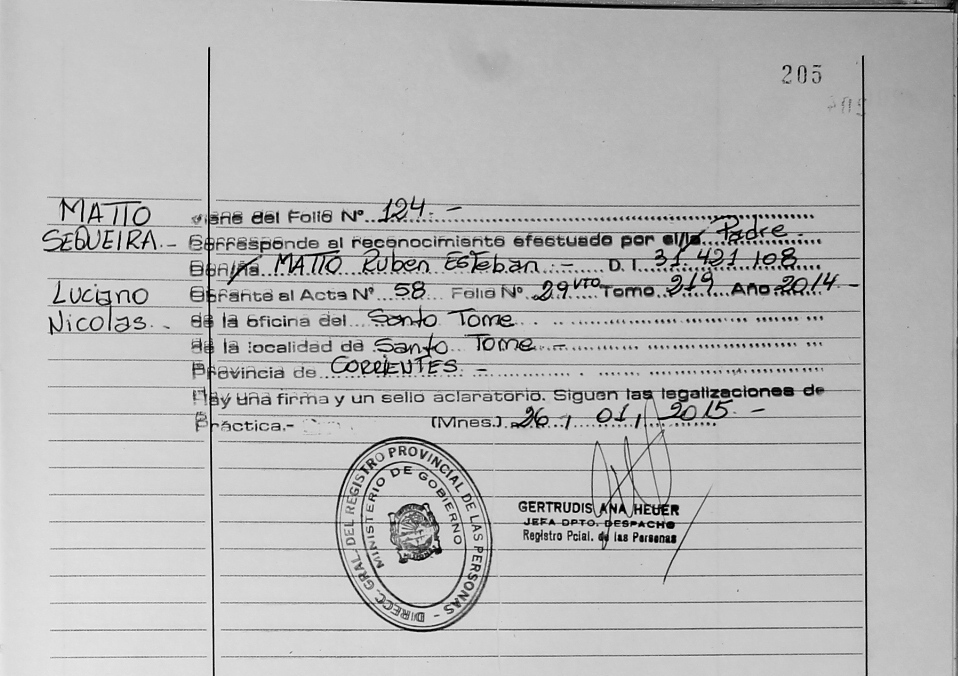 205
MATTO
SEQUEIRA.-
Luciano
Nicolas.-
viene del Folio Nº 124.-
Corresponde al reconocimiento efectuado por el/la Padre.
Don/ña. MATTO Ruben Esteban.- D. I. 31.421.108
Obrante al Acta Nº 58 Folio Nº 29 VTO Tomo 219 Año 2014.-
de la oficina del Santo Tome
de la localidad de Santo Tome.-
Provincia de CORRIENTES.-
Hay una firma y un sello aclaratorio. Siguen las legalizaciones de
Práctica.- (Mnes.) 26, 01, 2015.-
DIRECC. GRAL. DEL REGISTRO PROVINCIAL DE LAS PERSONAS -
MINISTERIO DE GOBIERNO
GERTRUDIS ANA HEUER
JEFA DPTO. DESPACHO
Registro Pcial. de las Personas